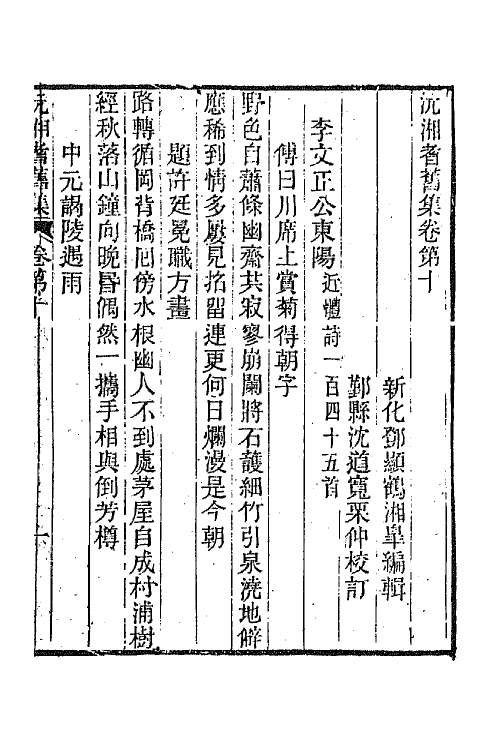 沅湘耆舊集卷第十
新化鄧顯鶴湘皐編輯
鄞縣沈道寬栗仲校訂
李文正公東陽近體詩一百四十五首
傅曰川席上賞菊得朝字
野色自蕭條幽齋共寂寥崩闌將石護細竹引泉澆地僻
應稀到情多屢見招留連更何日爛漫是今朝
題許廷冕職方畫
路轉循岡背橋囘傍水根幽人不到處茅屋自成村浦樹
經秋落山鐘向晚昏偶然一攜手相與倒芳樽
中元謁陵遇雨
沅湘耆舊集 卷第十 一